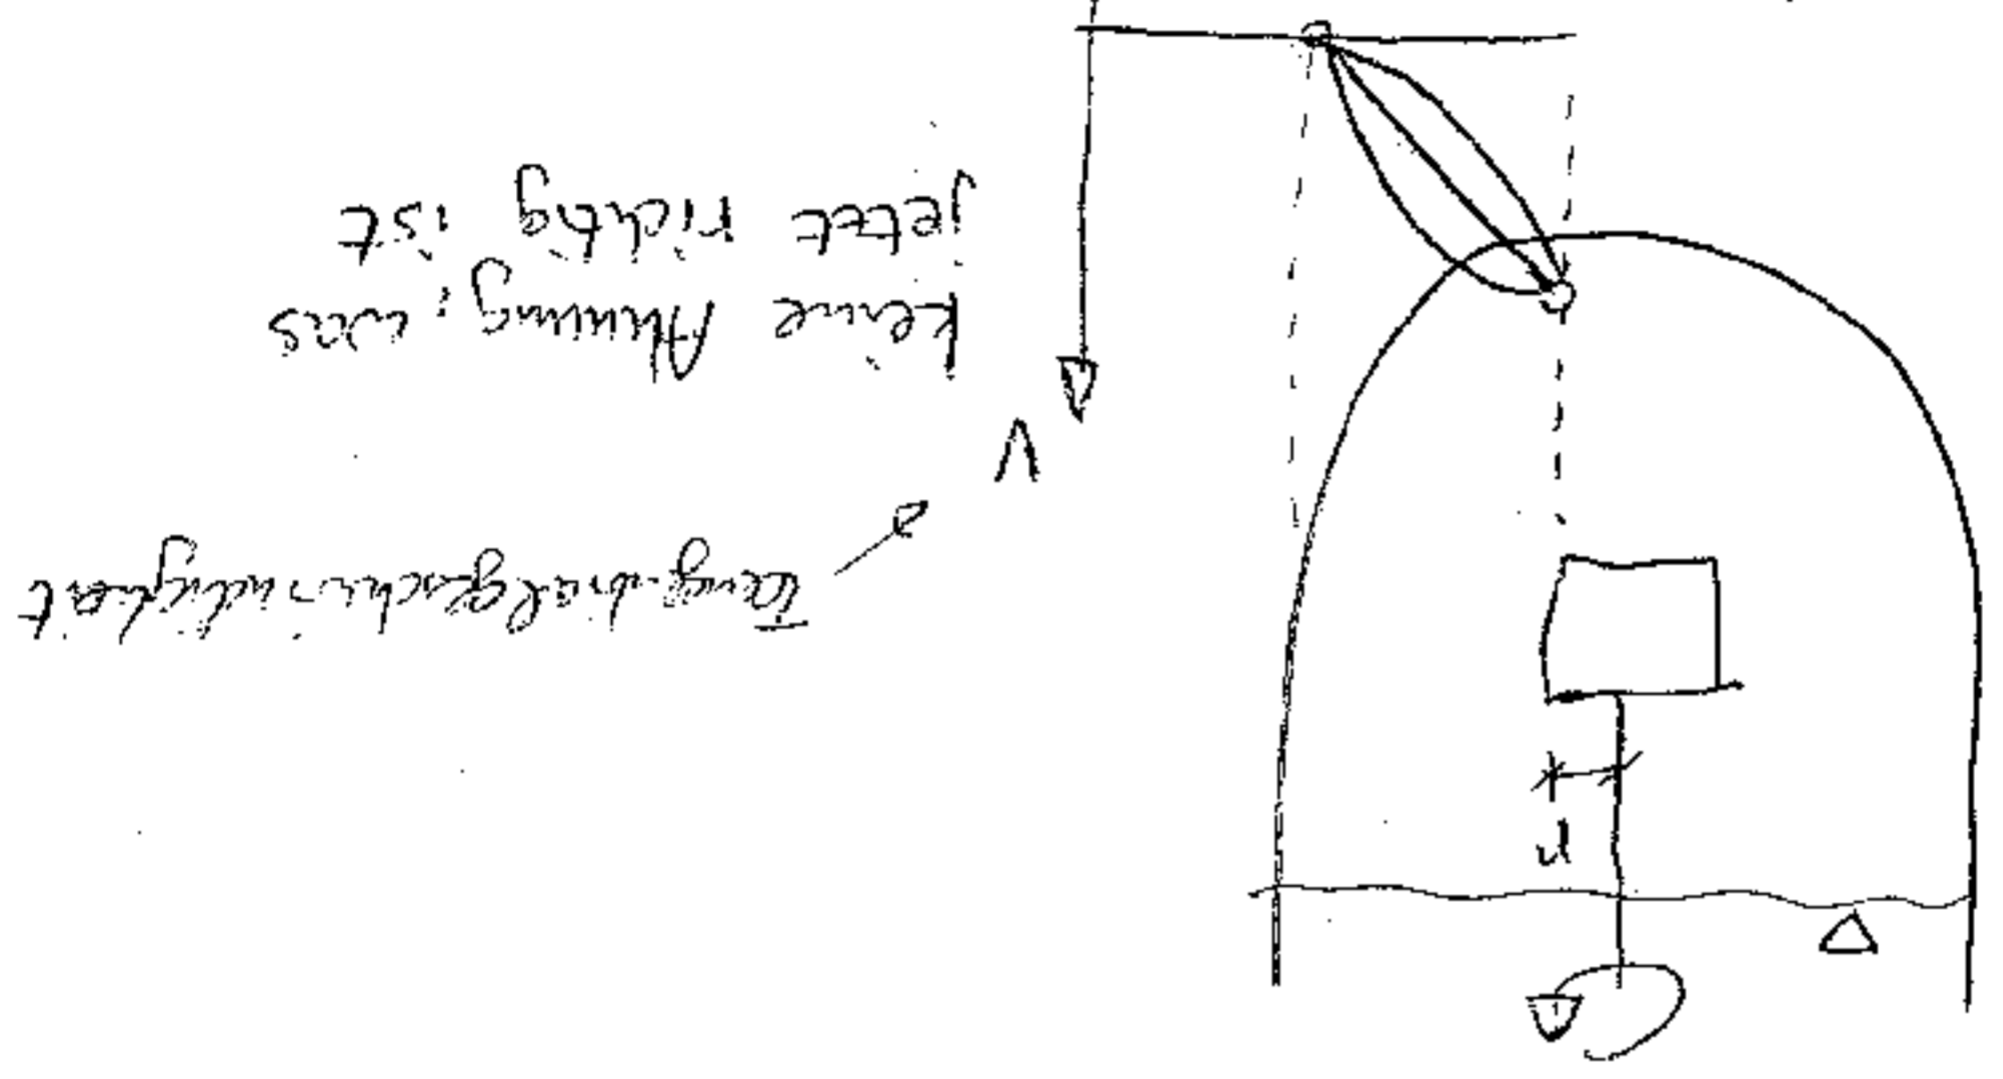 r
Tangentialgeschwindigkeit
V
keine Ahnung, was
jetzt richtig ist